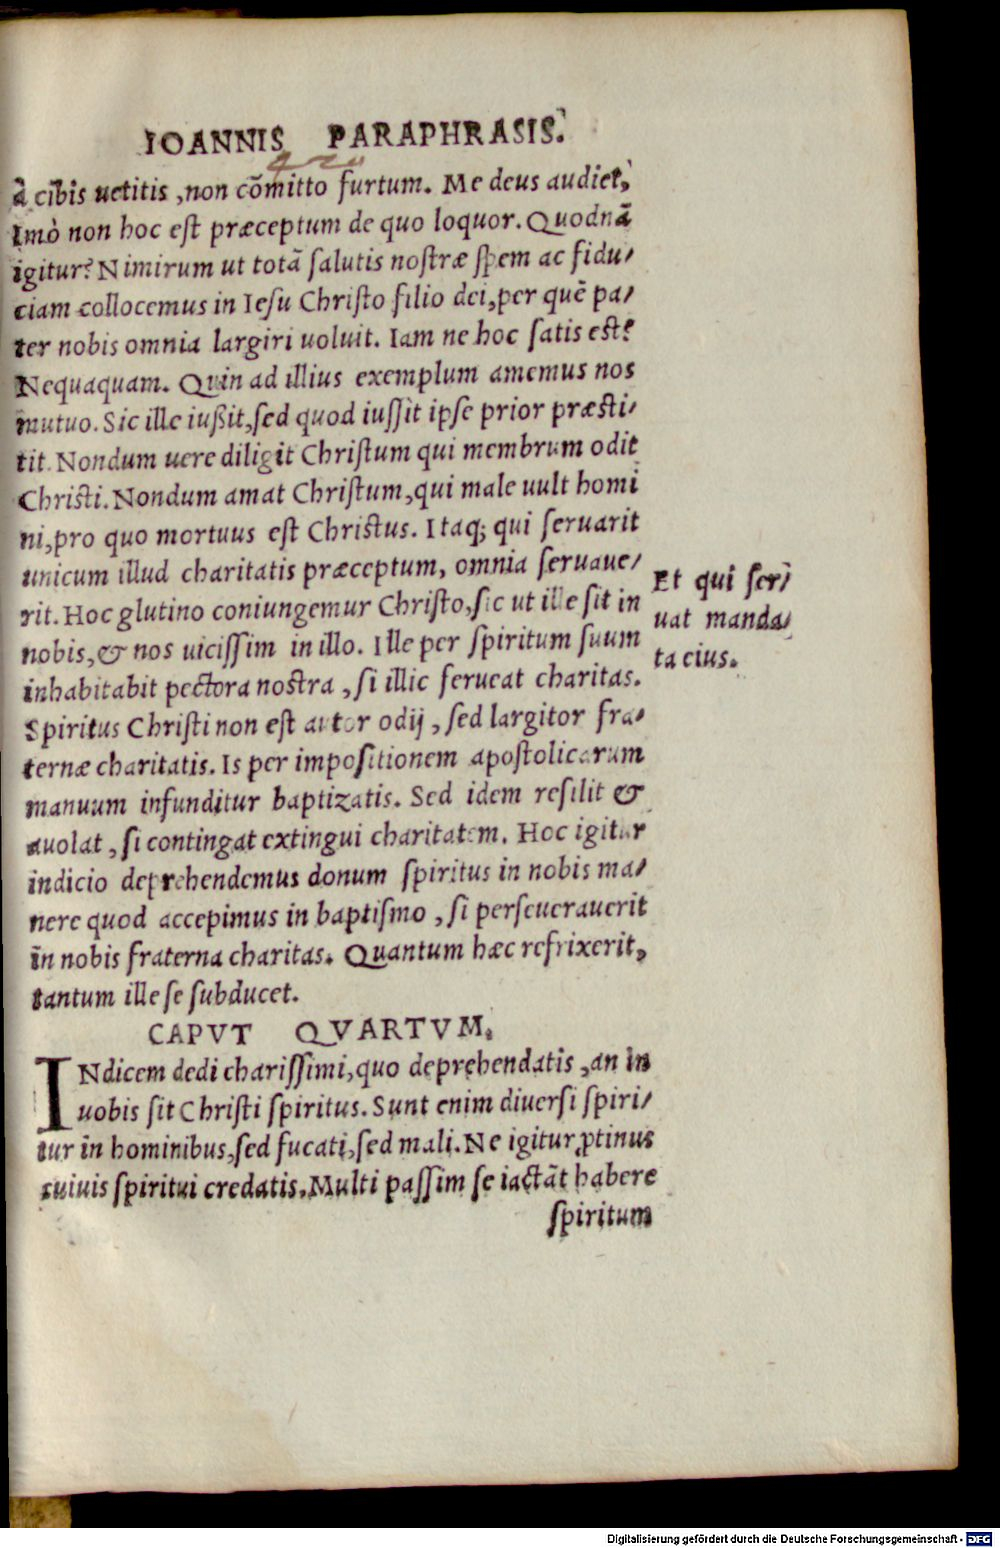 IOANNIS PARAPHRASIS.
à cibis uetitis, non cõmitto furtum. Me deus audiet,
Imò non hoc est præceptum de quo loquor. Quodnã
igitur? Nimirum ut totã salutis nostræ spem ac fidu/
ciam collocemus in Iesu Christo filio dei, per quẽ pa/
ter nobis omnia largiri uoluit. Iam ne hoc satis est?
Nequaquam. Quin ad illius exemplum amemus nos
mutuo. Sic ille iußit, sed quod iussit ipse prior præsti/
tit. Nondum uere diligit Christum qui membrum odit
Christi. Nondum amat Christum, qui male uult homi
ni, pro quo mortuus est Christus. Itaq; qui seruarit
unicum illud charitatis præceptum, omnia seruaue/
rit. Hoc glutino coniungemur Christo, sic ut ille sit in
nobis, & nos uicissim in illo. Ille per spiritum suum
inhabitabit pectora nostra, si illic ferueat charitas.
Spiritus Christi non est autor odij, sed largitor fra/
ternæ charitatis. Is per impositionem apostolicarum
manuum infunditur baptizatis. Sed idem resilit &
auolat, si contingat extingui charitatem. Hoc igitur
indicio deprehendemus donum spiritus in nobis ma/
nere quod accepimus in baptismo, si perseuerauerit
in nobis fraterna charitas. Quantum hæc refrixerit,
tantum ille se subducet.
Et qui ser/
uat manda/
ta eius.
CAPVT QVARTVM.
INdicem dedi charissimi, quo deprehendatis, an in
uobis sit Christi spiritus. Sunt enim diuersi spiri/
tur in hominibus, sed fucati, sed mali. Ne igitur ꝓtinus
cuiuis spiritui credatis. Multi passim se iactãt habere
spiritum
Digitalisierung gefördert durch die Deutsche Forschungsgemeinschaft - DFG